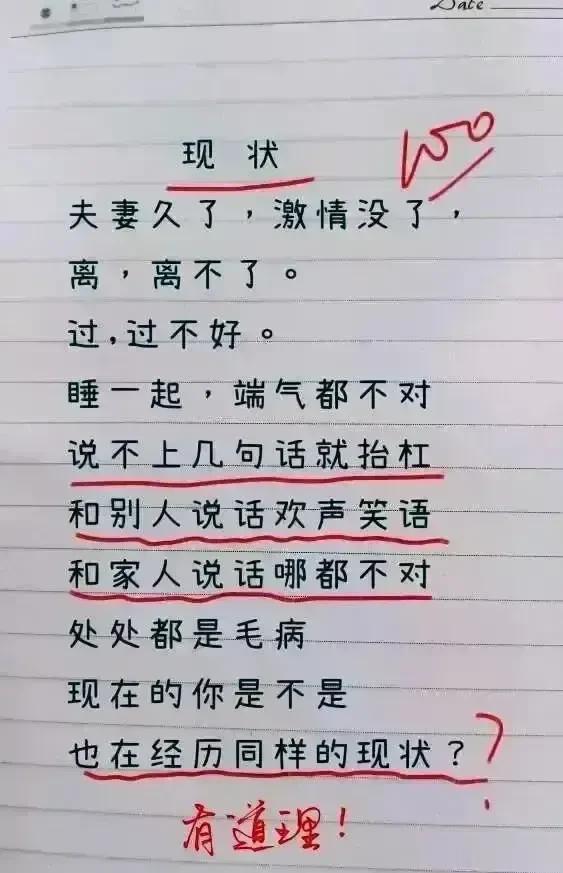 Date
现状
100
夫妻久了，激情没了，
离，离不了。
过，过不好。
睡一起，端气都不对
说不上几句话就抬杠
和别人说话欢声笑语
和家人说话哪都不对
处处都是毛病
现在的你是不是
也在经历同样的现状？
?
有道理！